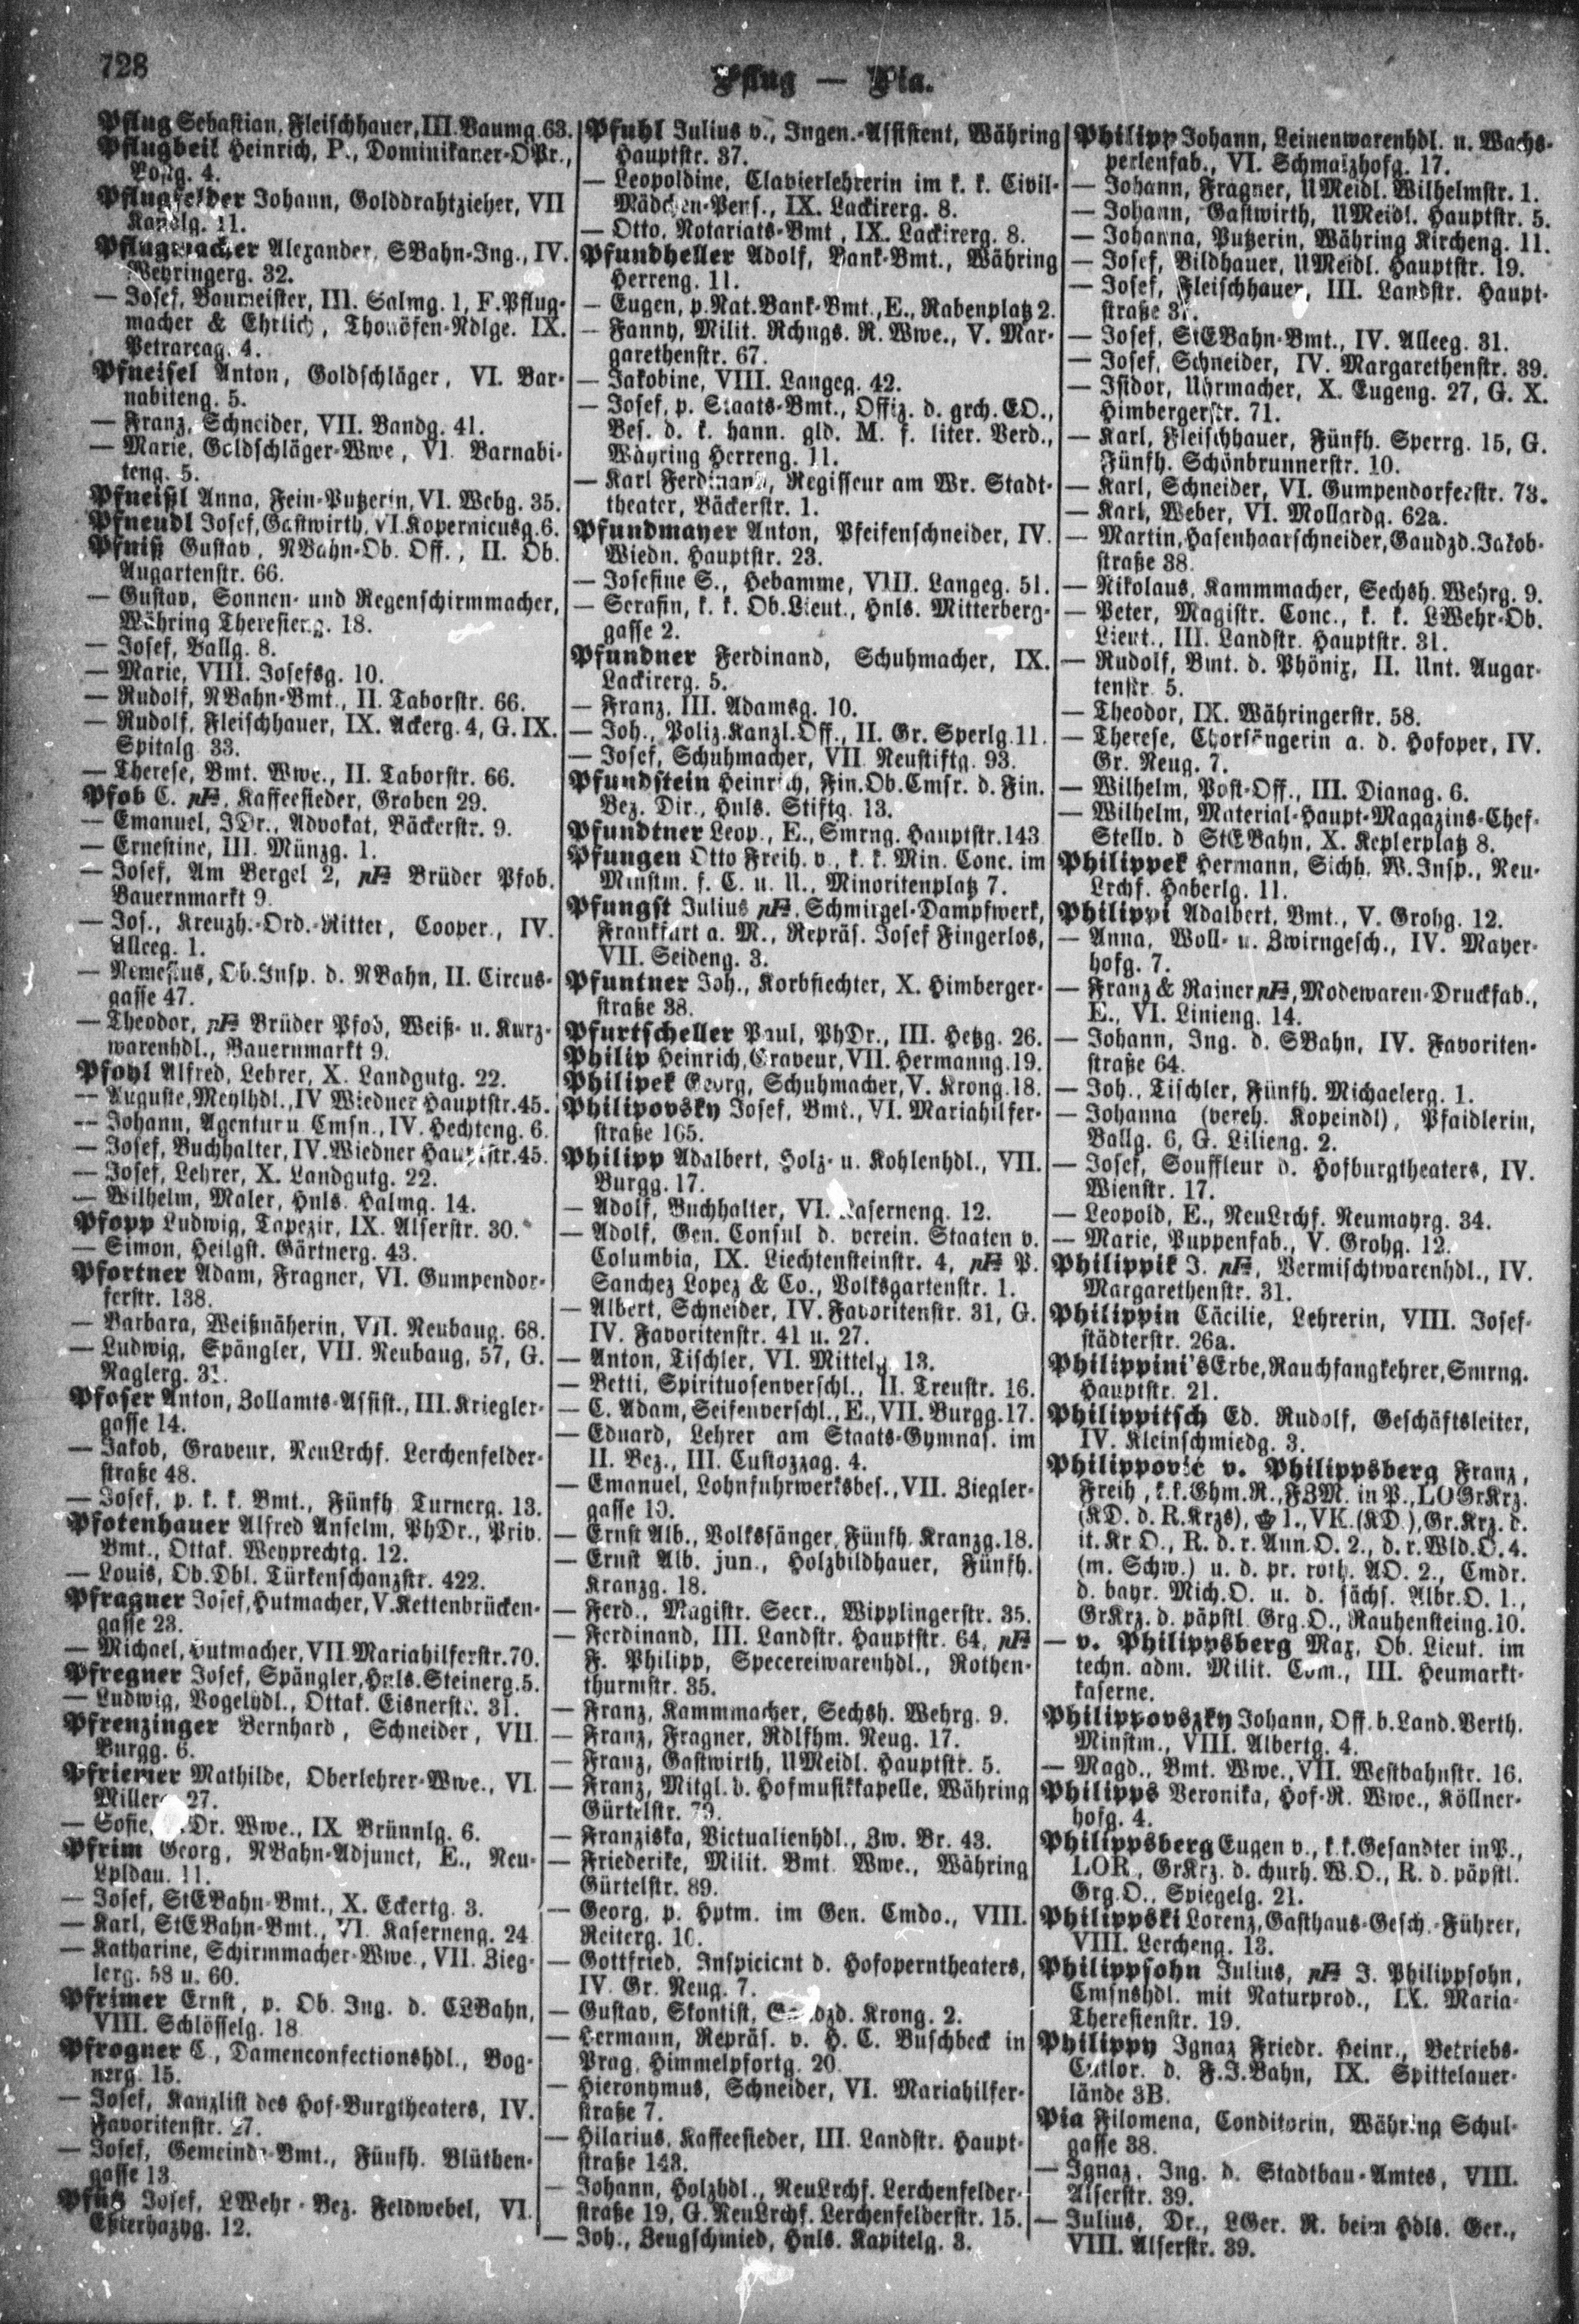 728
Pflug — Pia.
Pflug Sebastian, Fleischhauer, III. Baumg. 63.
Pflugbeil Heinrich, P., Dominikaner-OPr.,
Postg. 4.
Pflugfelder Johann, Golddrahtzieher, VII
Kandlg. 11.
Pflugmacher Alexander, SBahn-Ing., IV.
Weyringerg. 32.
— Josef, Baumeister, III. Salmg. 1, F. Pflug-
macher & Ehrlich, Thonöfen-Ndlge. IX.
Petrarcag. 4.
Pfneisel Anton, Goldschläger, VI. Bar-
nabiteng. 5.
— Franz, Schneider, VII. Bandg. 41.
— Marie, Goldschläger-Wwe, VI. Barnabi-
teng. 5.
Pfneißl Anna, Fein-Putzerin, VI. Webg. 35.
Pfneudl Josef, Gastwirth, VI. Kopernicusg. 6.
Pfniß Gustav, NBahn-Ob. Off., II. Ob.
Augartenstr. 66.
— Gustav, Sonnen- und Regenschirmmacher,
Währing Theresieng. 18.
— Josef, Ballg. 8.
— Marie, VIII. Josefsg. 10.
— Rudolf, NBahn-Bmt., II. Taborstr. 66.
— Rudolf, Fleischhauer, IX. Ackerg. 4, G. IX.
Spitalg. 33.
— Therese, Bmt. Wwe., II. Taborstr. 66.
Pfob C. pF, Kaffeesieder, Graben 29.
— Emanuel, JDr., Advokat, Bäckerstr. 9.
— Ernestine, III. Münzg. 1.
— Josef, Am Bergel 2, pF Brüder Pfob,
Bauernmarkt 9.
— Jos., Kreuzh.-Ord.-Ritter, Cooper., IV.
Alleeg. 1.
— Nemesius, Ob.Insp. d. NBahn, II. Circus-
gasse 47.
— Theodor, pF Brüder Pfob, Weiß- u. Kurz-
warenhdl., Bauernmarkt 9.
Pfohl Alfred, Lehrer, X. Landgutg. 22.
— Auguste, Mehlhdl., IV Wiedner Hauptstr. 45.
— Johann, Agentur u Cmsn., IV. Hechteng. 6.
— Josef, Buchhalter, IV. Wiedner Hauptstr. 45.
— Josef, Lehrer, X. Landgutg. 22.
— Wilhelm, Maler, Hnls. Halmg. 14.
Pfopp Ludwig, Tapezir, IX. Alserstr. 30.
— Simon, Heilgst. Gärtnerg. 43.
Pfortner Adam, Fragner, VI. Gumpendor-
ferstr. 138.
— Barbara, Weißnäherin, VII. Neubaug. 68.
— Ludwig, Spängler, VII. Neubaug, 57, G.
Naglerg. 31.
Pfoser Anton, Zollamts-Assist., III. Kriegler-
gasse 14.
— Jakob, Graveur, NeuLrchf. Lerchenfelder-
straße 48.
— Josef, p. k. k. Bmt., Fünfh. Turnerg. 13.
Pfotenhauer Alfred Anselm, PhDr., Priv.
Bmt., Ottak. Weyprechtg. 12.
— Louis, Ob.Dbl. Türkenschanzstr. 422.
Pfragner Josef, Hutmacher, V. Kettenbrücken-
gasse 23.
— Michael, Hutmacher, VII Mariahilferstr. 70.
Pfregner Josef, Spängler, Hnls. Steinerg. 5.
— Ludwig, Vogelhdl., Ottak. Eisnerstr. 31.
Pfrenzinger Bernhard, Schneider, VII.
Burgg. 6.
Pfriemer Mathilde, Oberlehrer-Wwe., VI.
Millerg. 27.
— Sofie, Dr. Wwe., IX Brünnlg. 6.
Pfrim Georg, NBahn-Adjunct, E., Neu-
Lpldau. 11.
— Josef, StEBahn-Bmt., X. Eckertg. 3.
— Karl, StEBahn-Bmt., VI. Kaserneng. 24
— Katharine, Schirmmacher-Wwe., VII. Zieg-
lerg. 58 u. 60.
Pfrimer Ernst, p. Ob. Ing. d. CLBahn,
VIII. Schlösselg. 18
Pfrogner C., Damenconfectionshdl., Bog-
nerg. 15.
— Josef, Kanzlist des Hof-Burgtheaters, IV.
Favoritenstr. 27.
— Josef, Gemeinde-Bmt., Fünfh. Blüthen-
gasse 13
Pfütz Josef, LWehr-Bez. Feldwebel, VI.
Esterhazyg. 12.
Pfuhl Julius v., Ingen.-Assistent, Währing
Hauptstr. 37.
— Leopoldine, Clavierlehrerin im k. k. Civil-
Mädchen-Pens., IX. Lackirerg. 8.
— Otto, Notariats-Bmt., IX. Lackirerg. 8.
Pfundheller Adolf, Bank-Bmt., Währing
Herreng. 11.
— Eugen, p. Nat.Bank-Bmt., E., Rabenplatz 2.
— Fanny, Milit. Rchngs. R. Wwe., V. Mar-
garethenstr. 67.
— Jakobine, VIII. Langeg. 42.
— Josef, p. Staats-Bmt., Offiz. d. grch. EO.,
Bes. d. k. hann. gld. M. f. liter. Verd.,
Währing Herreng. 11.
— Karl Ferdinand, Regisseur am Wr. Stadt-
theater, Bäckerstr. 1.
Pfundmayer Anton, Pfeifenschneider, IV.
Wiedn. Hauptstr. 23.
— Josefine S., Hebamme, VIII. Langeg. 51.
— Serafin, k. k. Ob.Lieut., Hnls. Mitterberg-
gasse 2.
Pfundner Ferdinand, Schuhmacher, IX.
Lackirerg. 5.
— Franz, III. Adamsg. 10.
— Joh., Poliz.Kanzl.Off., II. Gr. Sperlg. 11.
— Josef, Schuhmacher, VII Neustiftg. 93.
Pfundstein Heinrich, Fin.Ob.Cmsr. d. Fin.
Bez. Dir., Hnls. Stiftg. 13.
Pfundtner Leop., E., Smrng. Hauptstr. 143
Pfungen Otto Freih. v., k. k. Min. Conc. im
Minstm. f. C. u. U., Minoritenplatz 7.
Pfungst Julius pF, Schmirgel-Dampfwerk,
Frankfurt a. M., Repräs. Josef Fingerlos,
VII. Seideng. 3.
Pfuntner Joh., Korbflechter, X. Himberger-
straße 38.
Pfurtscheller Paul, PhDr., III. Hetzg. 26.
Philip Heinrich, Graveur, VII. Hermanng. 19.
Philipek Georg, Schuhmacher, V. Krong. 18.
Philipovsky Josef, Bmt., VI. Mariahilfer-
straße 165.
Philipp Adalbert, Holz- u. Kohlenhdl., VII.
Burgg. 17.
— Adolf, Buchhalter, VI. Kaserneng. 12.
— Adolf, Gen. Consul d. verein. Staaten v.
Columbia, IX. Liechtensteinstr. 4, pF P.
Sanchez Lopez & Co., Volksgartenstr. 1.
— Albert, Schneider, IV. Favoritenstr. 31, G.
IV. Favoritenstr. 41 u. 27.
— Anton, Tischler, VI. Mittelg. 13.
— Betti, Spirituosenverschl., II. Treustr. 16.
— C. Adam, Seifenverschl., E., VII. Burgg. 17.
— Eduard, Lehrer am Staats-Gymnas. im
II. Bez., III. Custozzag. 4.
— Emanuel, Lohnfuhrwerksbes., VII. Ziegler-
gasse 10.
— Ernst Alb., Volkssänger, Fünfh. Kranzg. 18.
— Ernst Alb. jun., Holzbildhauer, Fünfh.
Kranzg. 18.
— Ferd., Magistr. Secr., Wipplingerstr. 35.
— Ferdinand, III. Landstr. Hauptstr. 64, pF
F. Philipp, Specereiwarenhdl., Rothen-
thurmstr. 35.
— Franz, Kammmacher, Sechsh. Wehrg. 9.
— Franz, Fragner, Rdlfhm. Neug. 17.
— Franz, Gastwirth, UMeidl. Hauptstr. 5.
— Franz, Mitgl. d. Hofmusikkapelle, Währing
Gürtelstr. 79.
— Franziska, Victualienhdl., Zw. Br. 43.
— Friederike, Milit. Bmt. Wwe., Währing
Gürtelstr. 89.
— Georg, p. Hptm. im Gen. Cmdo., VIII.
Reiterg. 10.
— Gottfried, Inspicient d. Hofoperntheaters,
IV. Gr. Neug. 7.
— Gustav, Skontist, Gaudzd. Krong. 2.
— Hermann, Repräs. v. H. C. Buschbeck in
Prag, Himmelpfortg. 20.
— Hieronymus, Schneider, VI. Mariahilfer-
straße 7.
— Hilarius, Kaffeesieder, III. Landstr. Haupt-
straße 143.
— Johann, Holzhdl., NeuLrchf. Lerchenfelder-
straße 19, G. NeuLrchf. Lerchenfelderstr. 15.
— Joh., Zeugschmied, Hnls. Kapitelg. 3.
Philipp Johann, Leinenwarenhdl. u. Wachs-
perlenfab., VI. Schmalzhofg. 17.
— Johann, Fragner, UMeidl. Wilhelmstr. 1.
— Johann, Gastwirth, UMeidl. Hauptstr. 5.
— Johanna, Putzerin, Währing Kircheng. 11.
— Josef, Bildhauer, UMeidl. Hauptstr. 19.
— Josef, Fleischhauer, III. Landstr. Haupt-
straße
— Josef, StEBahn-Bmt., IV. Alleeg. 31.
— Josef, Schneider, IV. Margarethenstr. 39.
— Isidor, Uhrmacher, X. Eugeng. 27, G. X.
Himbergerstr. 71.
— Karl, Fleischhauer, Fünfh. Sperrg. 15, G.
Fünfh. Schönbrunnerstr. 10.
— Karl, Schneider, VI. Gumpendorferstr. 73.
— Karl, Weber, VI. Mollardg. 62a.
— Martin, Hasenhaarschneider, Gaudzd. Jakob-
straße 38.
— Nikolaus, Kammmacher, Sechsh. Wehrg. 9.
— Peter, Magistr. Conc., k. k. LWehr-Ob.
Lieut., III. Landstr. Hauptstr. 31.
— Rudolf, Bmt. d. Phönix, II. Unt. Augar-
tenstr. 5.
— Theodor, IX. Währingerstr. 58.
— Therese, Chorsängerin a. d. Hofoper, IV.
Gr. Neug. 7.
— Wilhelm, Post-Off., III. Dianag. 6.
— Wilhelm, Material-Haupt-Magazins-Chef-
Stellv. d StEBahn, X. Keplerplatz 8.
Philippek Hermann, Sichh. W. Insp., Neu-
Lrchf. Haberlg. 11.
Philippi Adalbert, Bmt., V. Grohg. 12.
— Anna, Woll- u. Zwirngesch., IV. Mayer-
hofg. 7.
— Franz & Rainer pF, Modewaren-Druckfab.,
E., VI. Linieng. 14.
— Johann, Ing. d. SBahn, IV. Favoriten-
straße 64.
— Joh., Tischler, Fünfh. Michaelerg. 1.
— Johanna (vereh. Kopeindl), Pfaidlerin,
Ballg. 6, G. Lilieng. 2.
— Josef, Souffleur d. Hofburgtheaters, IV.
Wienstr. 17.
— Leopold, E., NeuLrchf. Neumayrg. 34.
— Marie, Puppenfab., V. Grohg. 12.
Philippik J. pF, Vermischtwarenhdl., IV.
Margarethenstr. 31.
Philippin Cäcilie, Lehrerin, VIII. Josef-
städterstr. 26a.
Philippini's Erbe, Rauchfangkehrer, Smrng.
Hauptstr. 21.
Philippitsch Ed. Rudolf, Geschäftsleiter,
IV. Kleinschmiedg. 3.
Philippović v. Philippsberg Franz,
Freih., k.k. Ghm.R., FZM. in P., LOGrKrz.
(KD. d. R.Krzs), 1., VK.(KD.), Gr.Krz. d.
it. Kr O., R. d. r. Ann.O. 2., d. r. Wld.O. 4.
(m. Schw.) u. d. pr. roth. AO. 2., Cmdr.
d. bayr. Mich.O. u. d. sächs. Albr.O. 1.,
GrKrz. d. päpstl. Grg.O., Rauhensteing. 10.
— v. Philippsberg Max, Ob. Lieut. im
techn. adm. Milit. Com., III. Heumarkt-
kaserne.
Philippovszky Johann, Off. b. Land. Verth.
Minstm., VIII. Albertg. 4.
— Magd., Bmt. Wwe., VII. Westbahnstr. 16.
Philipps Veronika, Hof-R. Wwe., Köllner-
hofg. 4.
Philippsberg Eugen v., k. k. Gesandter in P.,
LOR., GrKrz. d. churh. W.O., R. d. päpstl.
Grg.O., Spiegelg. 21.
Philippski Lorenz, Gasthaus-Gesch.-Führer,
VIII. Lercheng. 13.
Philippsohn Julius, pF J. Philippsohn,
Cmsnshdl. mit Naturprod., IX. Maria-
Theresienstr. 19.
Philippy Ignaz Friedr. Heinr., Betriebs-
Cntlor. d. F.J.Bahn, IX. Spittelauer-
lände 3B.
Pia Filomena, Conditorin, Währing Schul-
gasse 38.
— Ignaz, Ing. d. Stadtbau-Amtes, VIII.
Alserstr. 39.
— Julius, Dr., LGer. R. beim Hdls. Ger.,
VIII. Alserstr. 39.